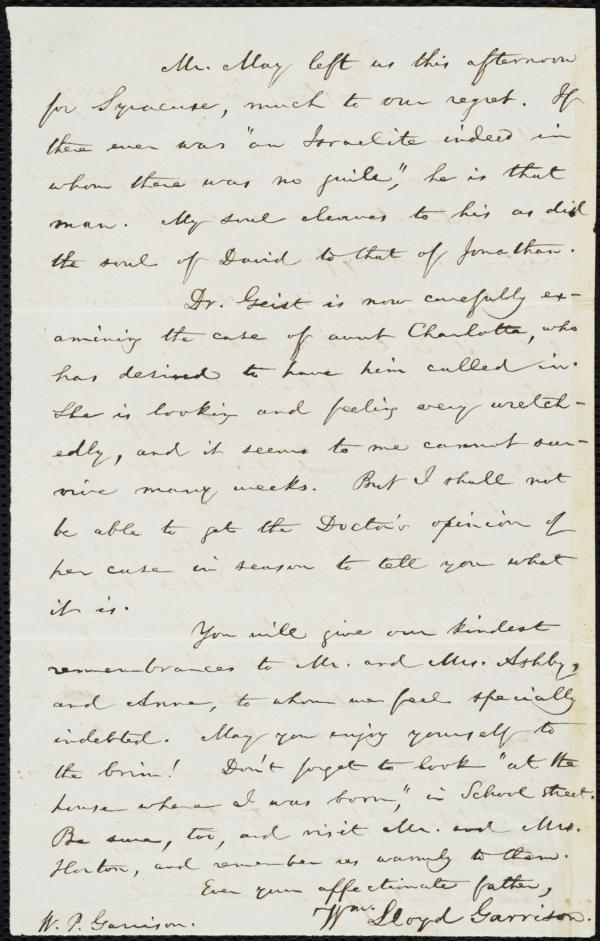 Mr. May left us this afternoon
for Syracuse, much to our regret. If
there ever was "an Israelite indeed in
whom there was no guile," he is that
man. My soul cleaves to his as did
the soul of David to that of Jonathan.
Dr. Geist is now carefully ex-
amining the case of aunt Charlotte, who
has desired to have him called in.
She is looking and feeling very wretch-
edly, and it seems to me cannot sur-
vive many weeks. But I shall not
be able to get the Doctor's opinion of
her case in season to tell you what
it is.
You will give our kindest
remembrances to Mr. and Mrs. Ashby,
and Anne, to whom we feel specially
indebted. May you enjoy yourself to
the brim! Don't forget to look "at the
house where I was born," in School street.
Be sure, too, and visit Mr. and Mrs.
Horton, and remember us warmly to them.
Ever your affectionate father,
Wm. Lloyd Garrison.
W. P. Garrison.